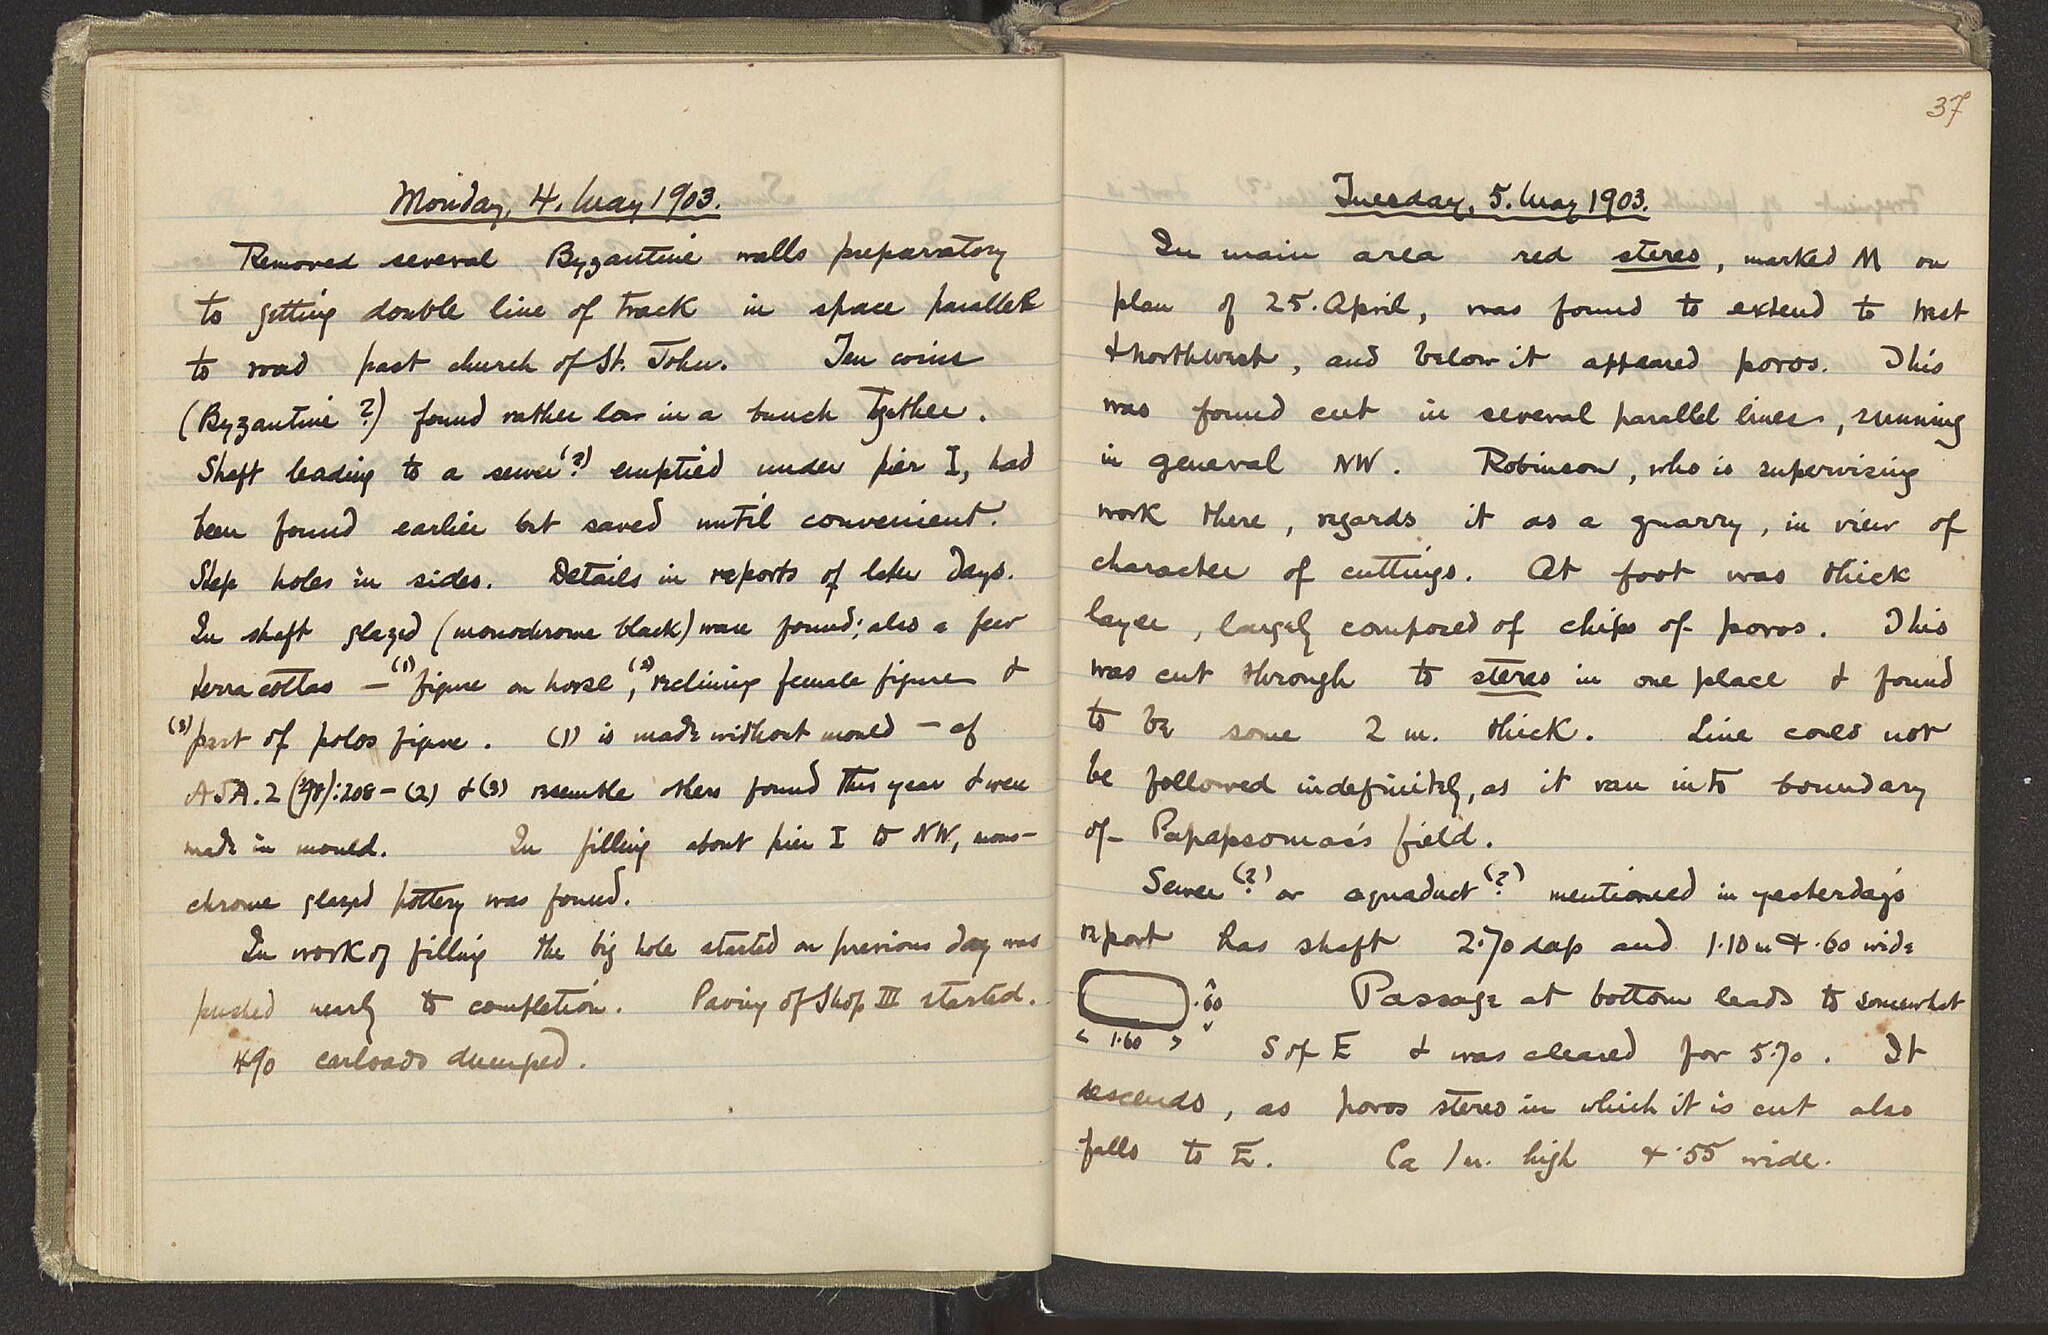 Monday, 4. May 1903.
Removed several Byzantine walls preparatory
to getting double line of track in space parallel
to road past church of St. John. Ten coins
(Byzantine ?) found rather low in a bunch together.
Shaft leading to a sewer (?) emptied under pier I, had
been found earlier but saved until convenient.
Step holes in sides. Details in reports of later days.
In shaft glazed (monochrome black) ware found; also a few
terra cottas — (1) figure on horse, (2) reclining female figure &
(3) part of polos figure. (1) is made without mould — cf
AJA. 2 ('98): 208 — (2) & (3) resemble others found this year & were
made in mould. In filling about pier I to NW, mono-
chrome glazed pottery was found.
In work of filling the big hole started on previous day was
pushed nearly to completion. Paving of Shop III started.
490 carloads dumped.
37
Tuesday, 5. May 1903.
In main area red stereo, marked M on
plan of 25. April, was found to extend to west
& northwest, and below it appeared poros. This
was found cut in several parallel lines, running
in general NW. Robinson, who is supervising
work there, regards it as a quarry, in view of
character of cuttings. At foot was thick
layer, largely composed of chips of poros. This
was cut through to stereo in one place & found
to be some 2 m. thick. Line could not
be followed indefinitely, as it ran into boundary
of Papapsoma's field.
Sewer (?) or aquaduct (?) mentioned in yesterday's
report has shaft 2.70 deep and 1.10 m & .60 wide
.60 Passage at bottom leads to somewhat
< 1.60 > S of E & was cleared for 5.70. It
descends, as poros stereo in which it is cut also
falls to E. Ca 1 m. high & .55 wide.